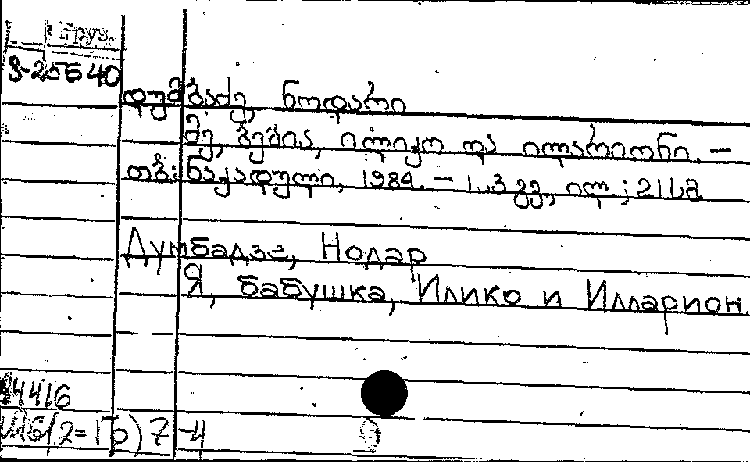 Груз.
დუმბაძე, ნოდარი
მე, ბებია, ილიკო და ილარიონი. –
თბ.: ნაკადული, 1984. – გვ, ილ.; 21 სმ
Думбадзе, Нодар
Я, бабушка, Илико и Илларион
14416
(2=Гр) 7-4